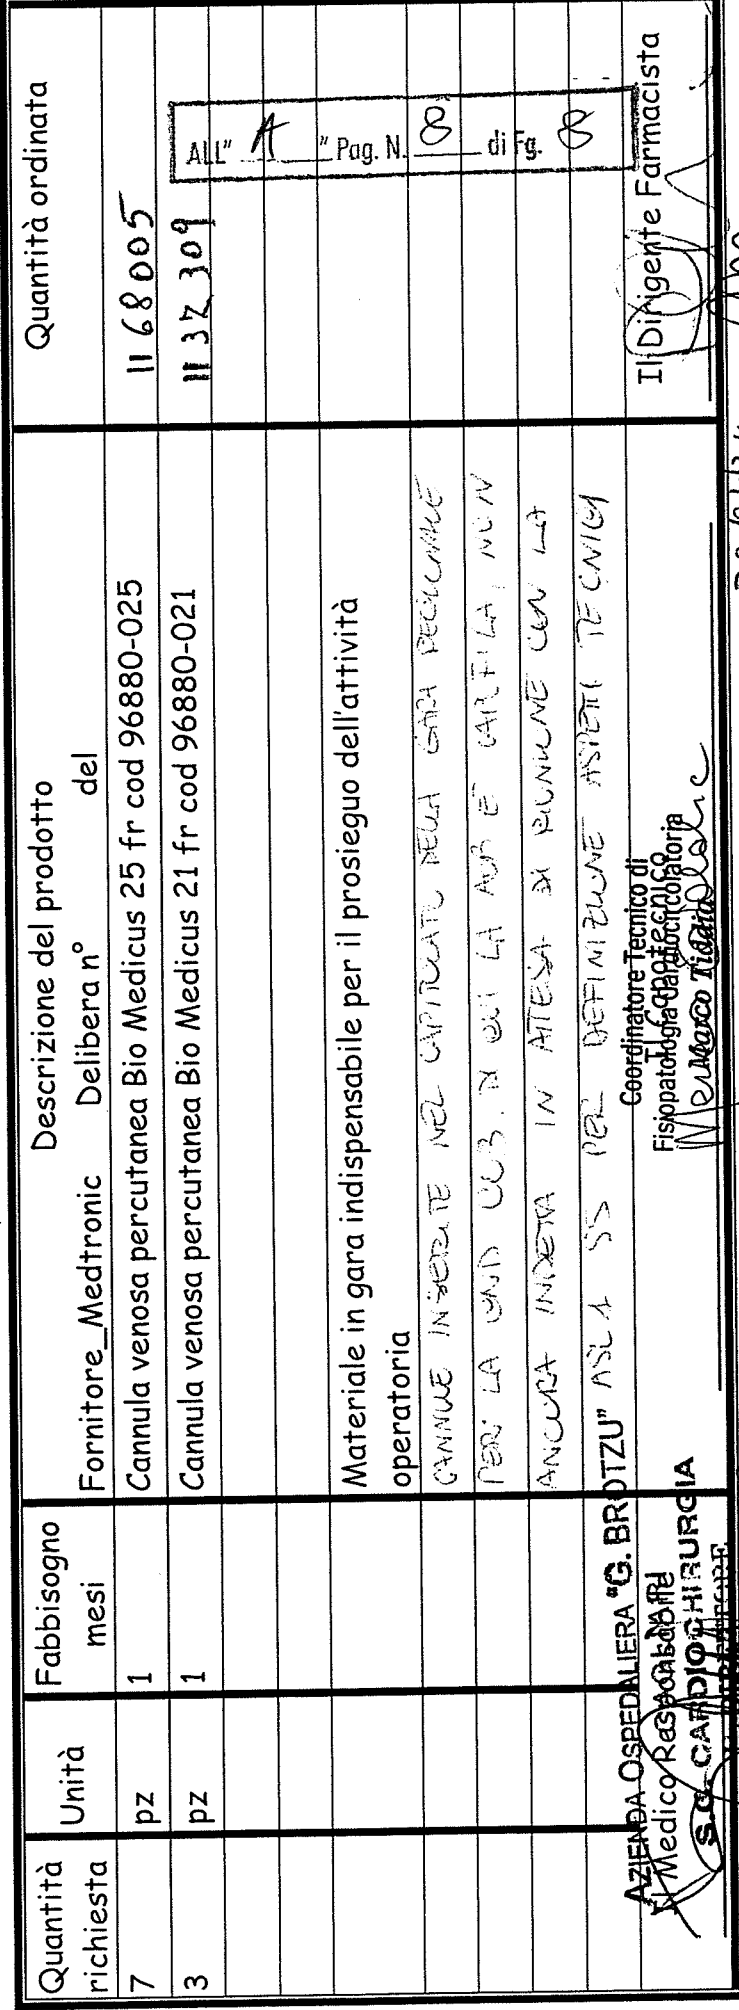 Quantità richiesta Unità Fabbisogno mesi Descrizione del prodotto Quantità ordinata
Fornitore_Medtronic Delibera n° del
7 pz 1 Cannula venosa percutanea Bio Medicus 25 fr cod 96880-025 1168005
3 pz 1 Cannula venosa percutanea Bio Medicus 21 fr cod 96880-021 1132309
ALL" A " Pag. N. 8 di Fg. 8
Materiale in gara indispensabile per il prosieguo dell'attività
operatoria
CANNULE INSERITE NEL CAPITOLATO DELLA GARA REGIONALE
PER LA UND CC3. DI CUI LA AOB È CAPFILA, NON
ANCORA INDETTA IN ATTESA DI RIUNIONE CON LA
ASL 1 SS PER DEFINIZIONE ASPETTI TECNICI
AZIENDA OSPEDALIERA "G. BROTZU"
Il Medico Responsabile
S.C. CARDIOCHIRURGIA
Coordinatore Tecnico di
Il Capotecnico
Fisiopatologia Cardiocircolatoria
Marco Tiddia
Il Dirigente Farmacista